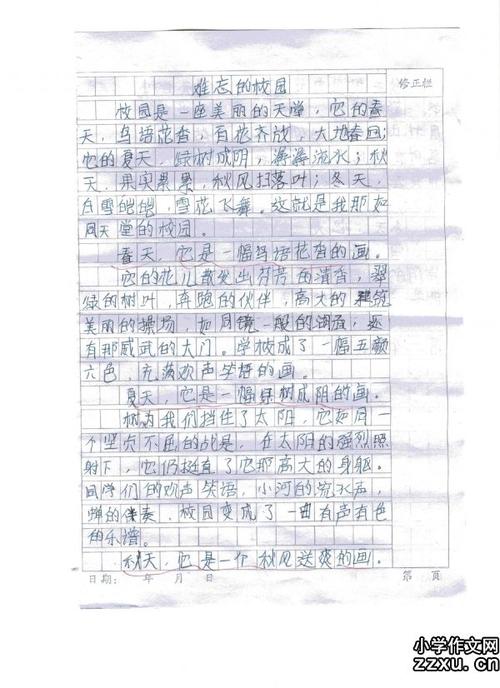 难忘的校园
修正栏
校园是一座美丽的天堂，它的春
天，鸟语花香，百花齐放，大地春回；
它的夏天，绿树成阴，潺潺流水；秋
天，果实累累，秋风扫落叶；冬天，
白雪皑皑，雪花飞舞。这就是我那如
同天堂的校园。
春天，它是一幅鸟语花香的画。
它的花儿散发出芬芳的清香，翠
绿的树叶，奔跑的伙伴，高大的建筑
美丽的操场，如同镜一般的湖面，还
有那威武的大门。学校成了一幅五颜
六色，充满欢声笑语的画。
夏天，它是一幅绿树成阴的画。
树为我们挡住了太阳，它如同一
个坚贞不屈的战士，在太阳的强烈照
射下，它仍挺直了它那高大的身躯。
同学们的欢声笑语，小河的流水声，
蝉的伴奏，校园变成了一曲有声有色
的乐谱。
秋天，它是一个秋风送爽的画。
日期： 年 月 日 第 页
小学作文网
zzxu.cn